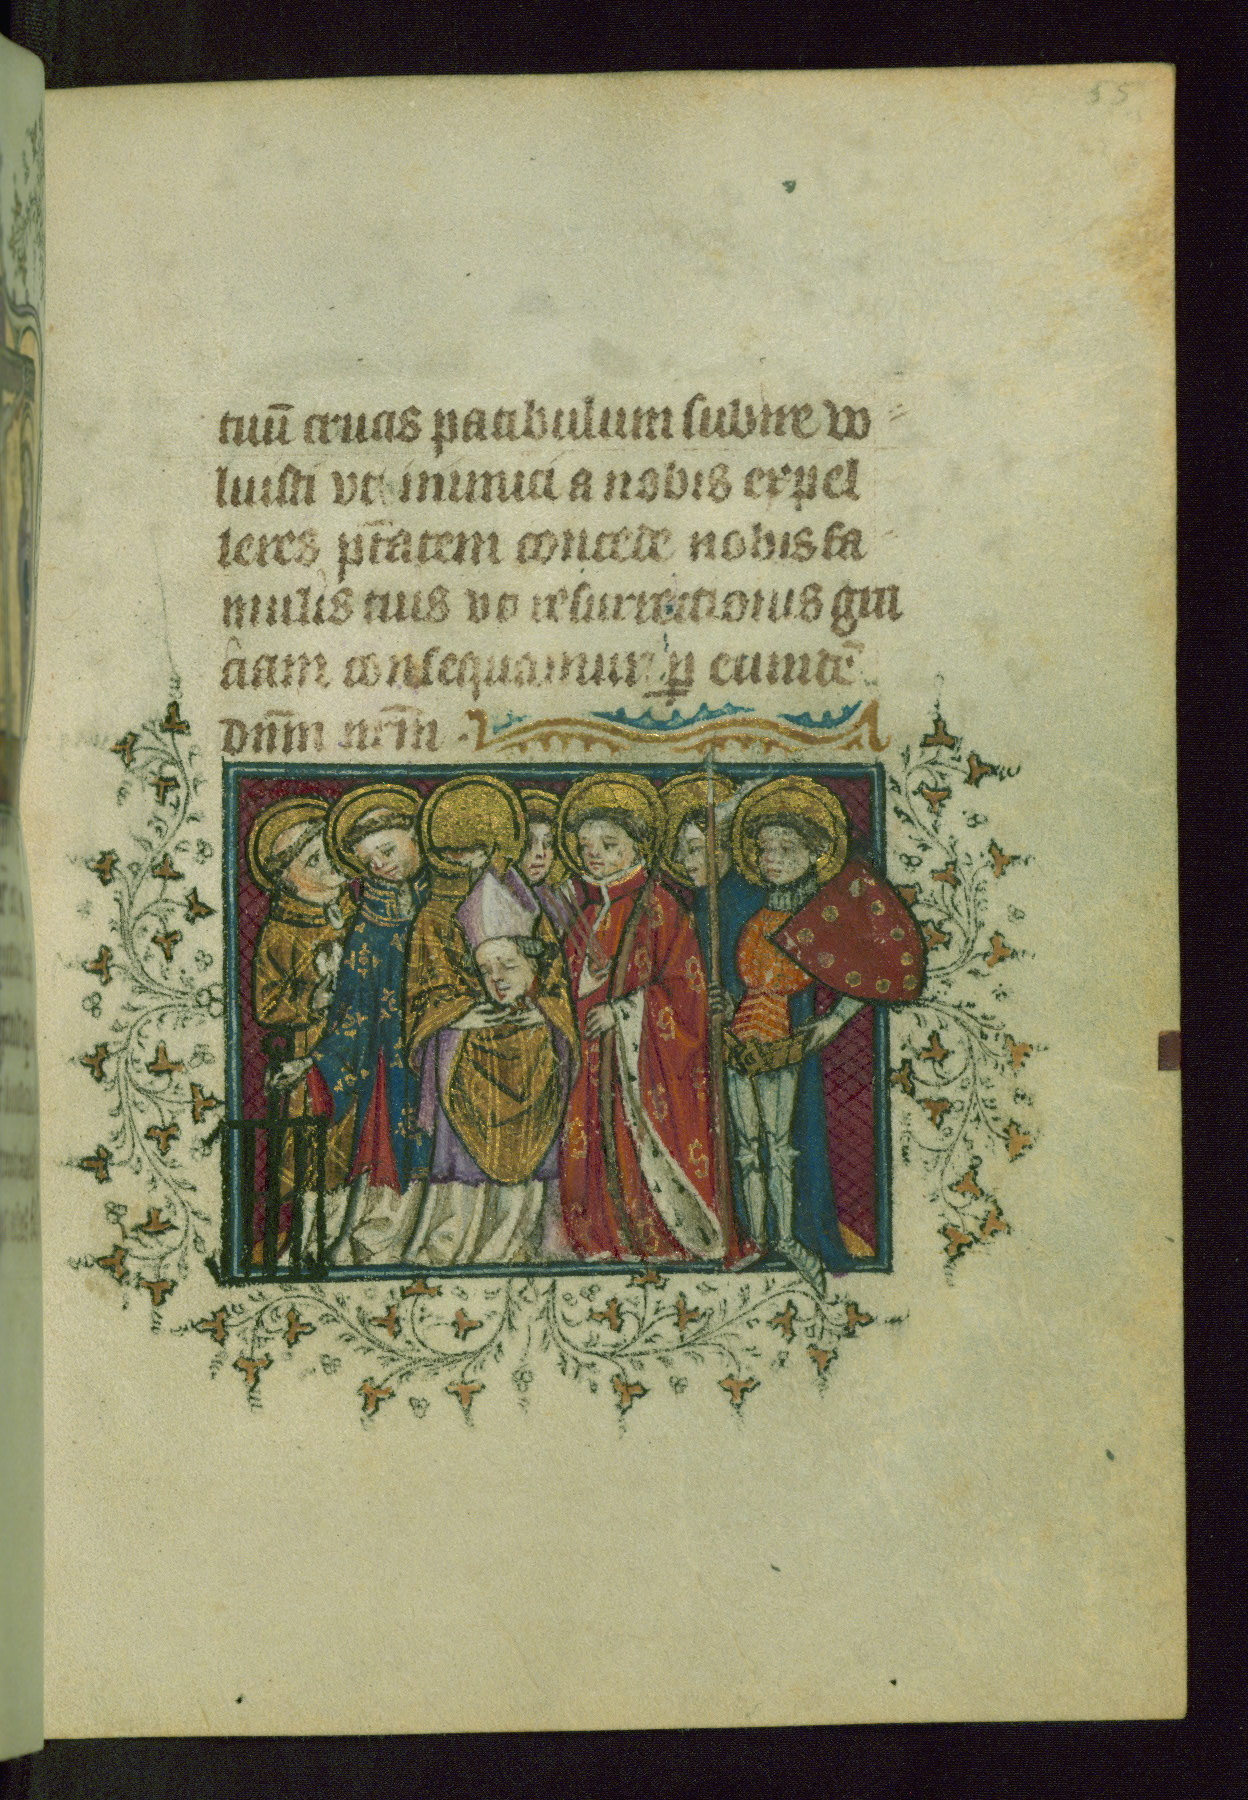 55
tuū crucis patibulum subire vo
luisti vt inimici a nobis expel
leres ptātem concede nobis fa
mulis tuis vt resurrectionis gr̄
ciam consequamur p̱ eumdē
dn̄m nr̄m